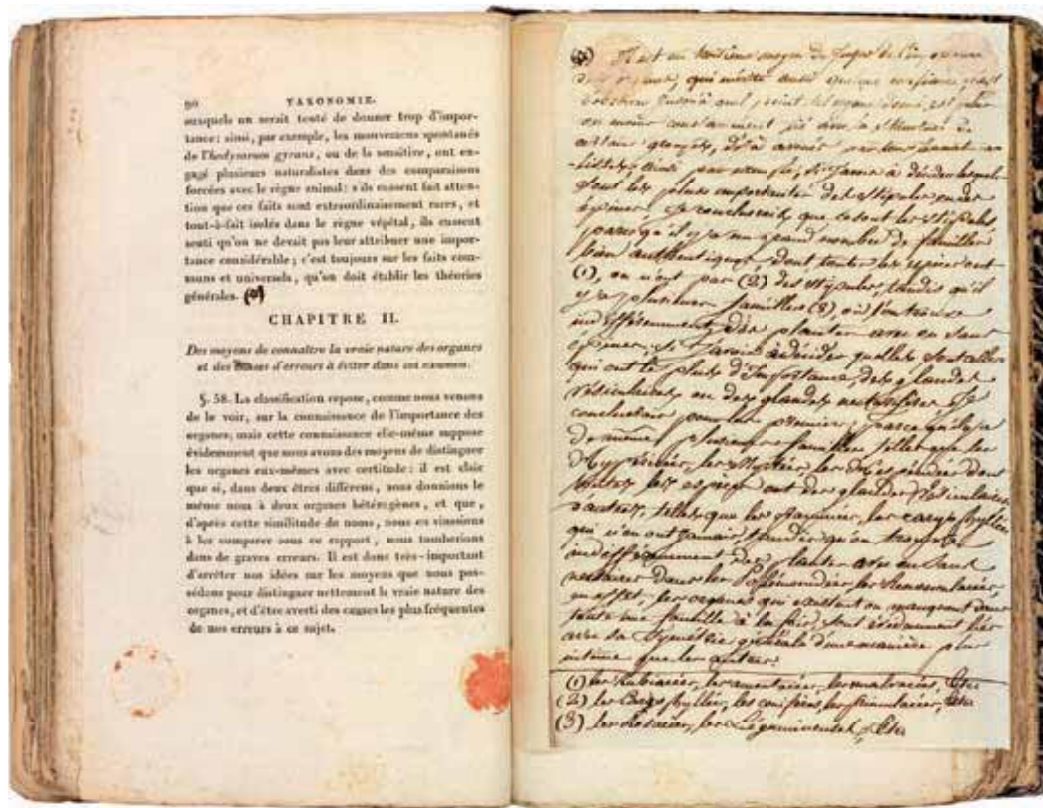 90 TAXONOMIE.
auxquels on serait tenté de donner trop d'impor-
tance: ainsi, par exemple, les mouvemens spontanés
de l'hedysarum gyrans, ou de la sensitive, ont en-
gagé plusieurs naturalistes dans des comparaisons
forcées avec le règne animal: s'ils eussent fait atten-
tion que ces faits sont extraordinairement rares, et
tout-à-fait isolés dans le règne végétal, ils eussent
senti qu'on ne devait pas leur attribuer une impor-
tance considérable; c'est toujours sur les faits com-
muns et universels, qu'on doit établir les théories
générales.
CHAPITRE II.
Des moyens de connaître la vraie nature des organes
et des causes d'erreurs à éviter dans cet examen.
§. 58. La classification repose, comme nous venons
de le voir, sur la connaissance de l'importance des
organes; mais cette connaissance elle-même suppose
évidemment que nous avons des moyens de distinguer
les organes eux-mêmes avec certitude: il est clair
que si, dans deux êtres différens, nous donnions le
même nom à deux organes hétérogènes, et que,
d'après cette similitude de noms, nous en vinssions
à les comparer sous ce rapport, nous tomberions
dans de graves erreurs. Il est donc très-important
d'arrêter nos idées sur les moyens que nous pos-
sédons pour distinguer nettement la vraie nature des
organes, et d'être averti des causes les plus fréquentes
de nos erreurs à ce sujet.
Il est un troisième moyen de juger de l'importance
des organes, qui mérite aussi quelque confiance, c'est
organe donné, est plus
ou moins constamment dans la structure de
certains groupes,
ainsi par exemple, si j'avais à décider lesquels
sont les plus importantes des stipules ou des
épines, je conclurais que ce sont les stipules
parce qu'il y a un grand nombre de familles
bien authentiques dont toutes les espèces ont
(1), ou n'ont pas (2) des stipules, tandis qu'il
y a plusieurs familles (3), où l'on trouve
indifféremment des plantes avec ou sans
épines. Si j'avais à décider quelles sont celles
qui ont le plus d'importance, des glandes
vésiculaires ou des glandes nectarifères, je
conclurais pour les premières, parce qu'il y a
de même plusieurs familles telles que les
les Myrtées, les dont
toutes les espèces ont des glandes vésiculaires,
d'autres, telles que les les caryophyllées
qui n'en ont jamais, tandis qu'on trouve
indifféremment des plantes avec ou sans
nectaires dans les les Renonculacées,
en effet, les organes qui existent ou manquent dans
toute une famille à la fois, sont évidemment liés
avec sa symétrie générale d'une manière plus
intime que les autres.
(1) les Rubiacées, les amentacées, les malvacées, Etc
(2) les Caryophyllées, les conifères, les Etc
(3) les Rosacées, les Légumineuses, Etc